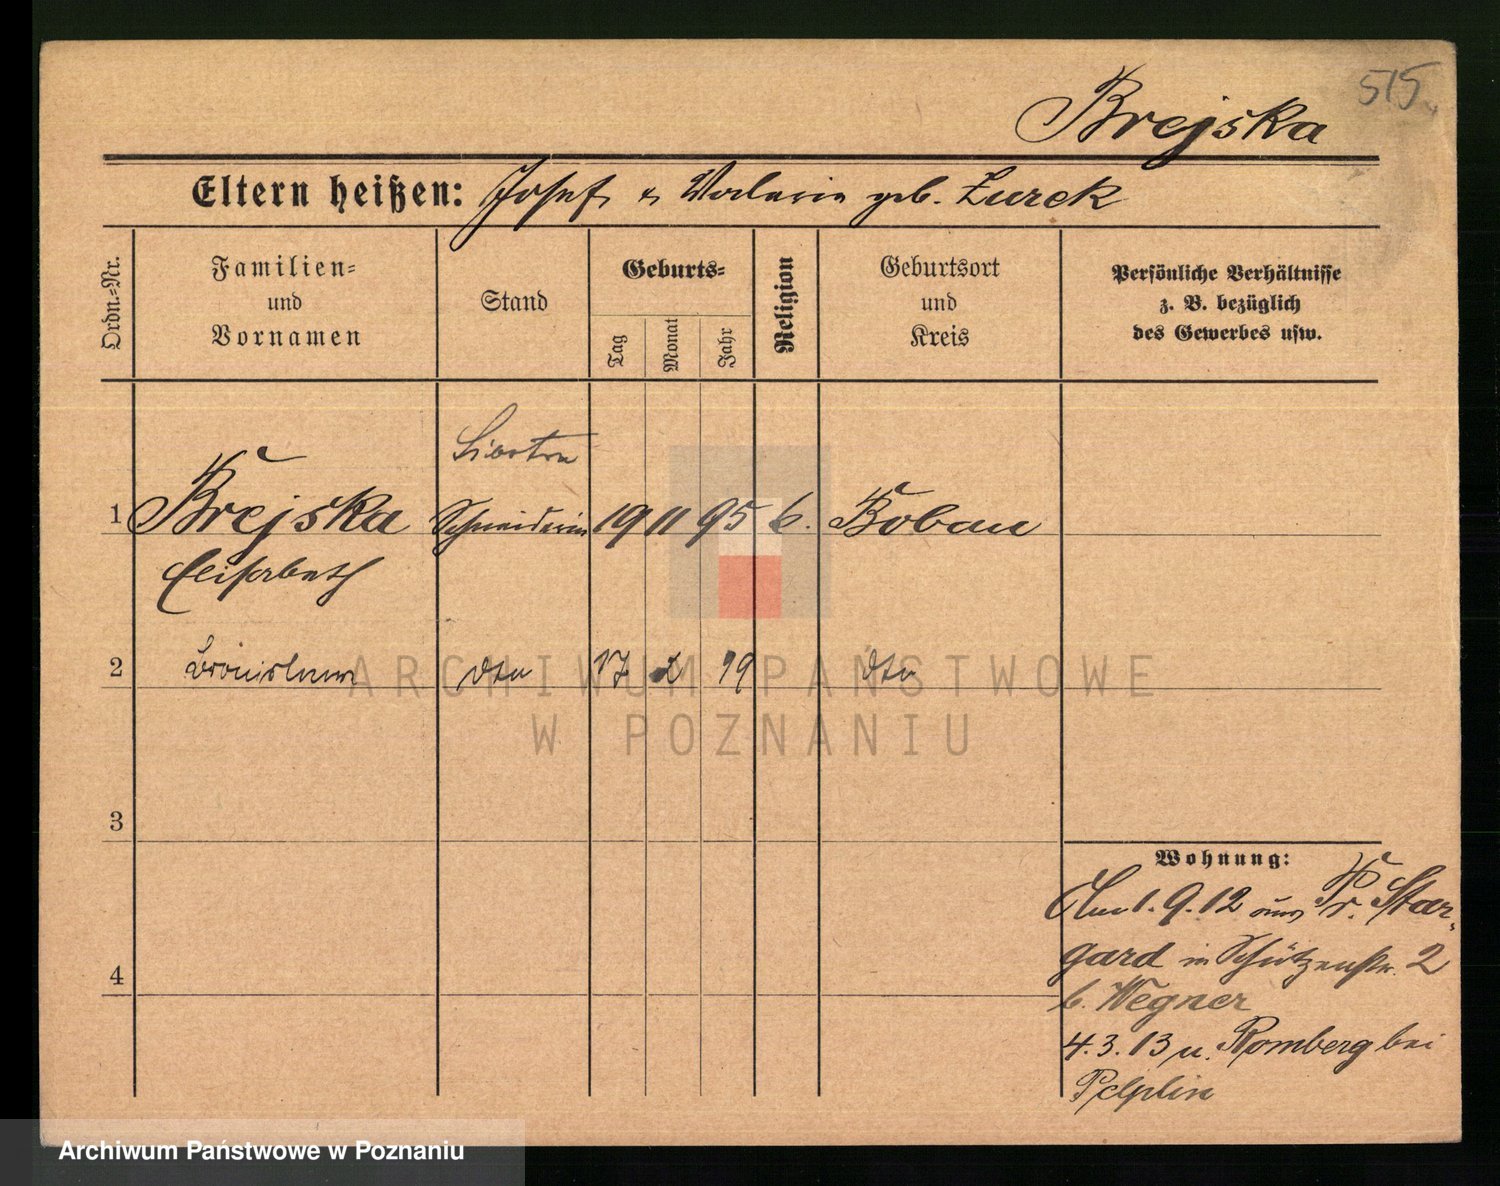 515
Brejska
Eltern heißen: Josef & Valerie geb. Zurek
Ordn.=Nr.
Familien=
und
Vornamen
Stand
Geburts=
Tag
Monat
Jahr
Religion
Geburtsort
und
Kreis
Persönliche Verhältnisse
z. B. bezüglich
des Gewerbes usw.
1 Brejska Schneiderin 19 11 95 k. Bobau
Elisabeth
2 Bronislawa dto 17 2 99 dto
3
4
Wohnung:
Am 1. 9. 12 aus Pr. Star-
gard in Schützenstr. 2
b. Wegner
4. 3. 13 n. Romberg bei
Pelplin
ARCHIWUM PAŃSTWOWE
W POZNANIU
Archiwum Państwowe w Poznaniu